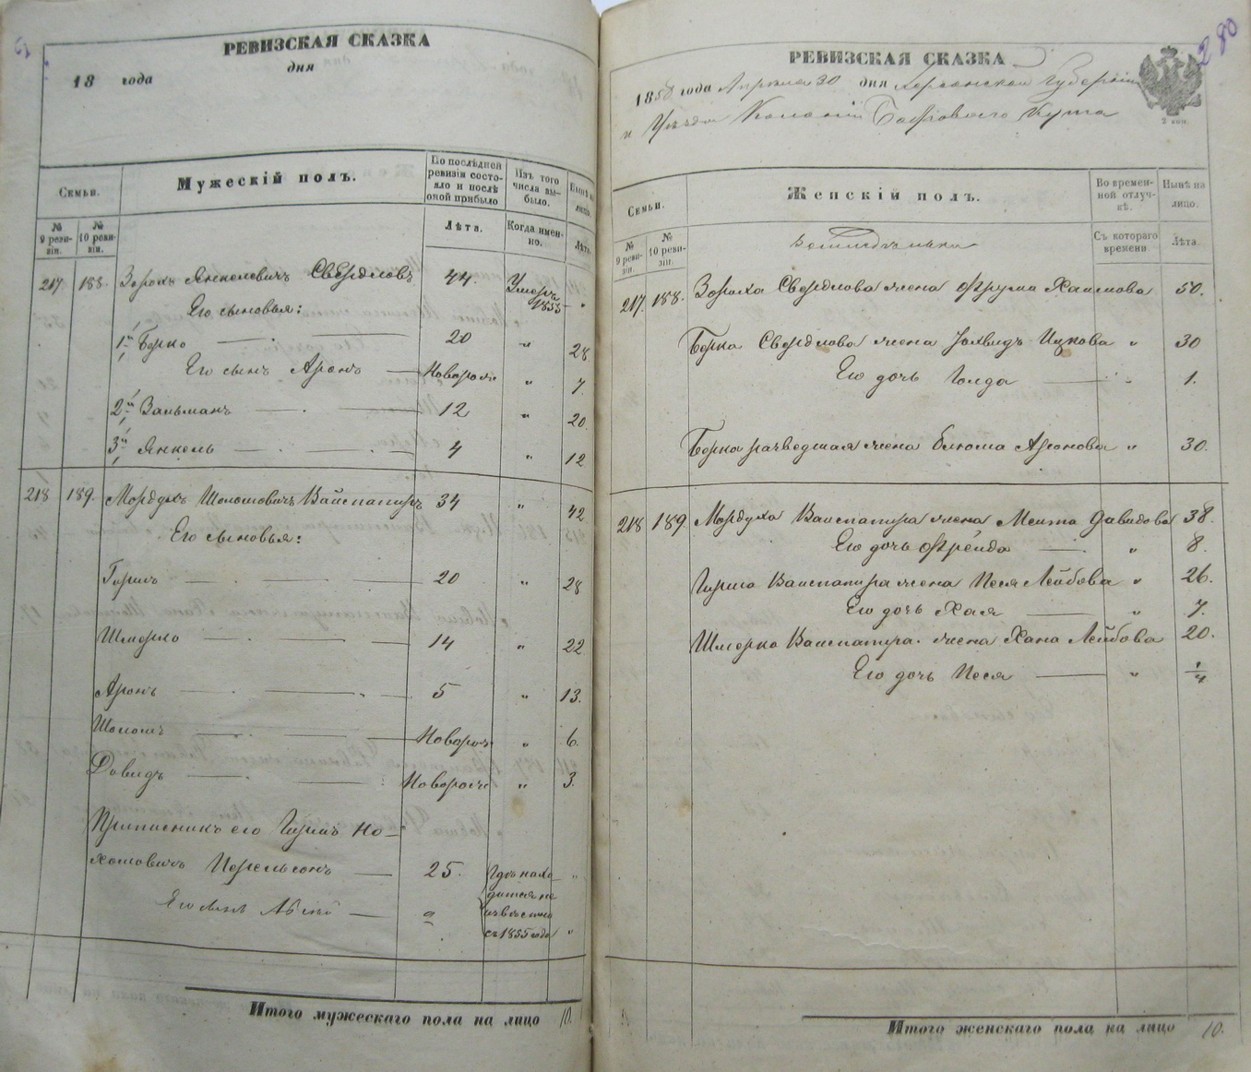 РЕВИЗСКАЯ СКАЗКА
18 года дня
Семьи.
Мужескій полъ.
По послѣдней ревизіи состо-
яло и послѣ оной прибыло
Изъ того числа вы-
было.
Нынѣ на лицо.
№ 9 реви-
зіи.
№ 10 реви-
зіи.
Лѣта.
Когда имен-
но.
Лѣта.
217 188. Зорохъ Янкелевичъ Свердловъ 44. Умеръ 1855 „
Его сыновья:
1й Берко 20 „ 28
Его сынъ Аронъ Новорож „ 7.
2й Зальманъ 12 „ 20.
3й Янкель 4 „ 12
218 189. Мордухъ Шоломовичъ Вайсапиръ 34 „ 42
Его сыновья:
Гиршъ 20 „ 28
Шмерко 14 „ 22
Аронъ 5 „ 13.
Шоломъ Новорож „ 6.
Давидъ Новорож „ 3.
Приписникъ его Гиршъ Но-
хомовичъ Перельсонъ 25. Гдѣ нахо-
дится не
извѣстно
съ 1855 года „
Итого мужескаго пола на лицо 10.
280
РЕВИЗСКАЯ СКАЗКА
1858 года Апрѣля 30 дня Херсонской Губерніи
и Уѣзда Колоніи Боброваго Кута
Семьи.
Женскій полъ.
Во времен-
ной отлуч-
кѣ.
Нынѣ на лицо.
№ 9 реви-
зіи.
№ 10 реви-
зіи.
Съ котораго времени.
Лѣта.
217. 188. Зороха Свердлова жена Фрума Хаимова 50.
Берка Свердлова жена Ицкова „ 30
Его дочь Голда „ 1.
Берка разведшая жена Блюма Аронова „ 30.
218 189 Мордуха Вайсапира жена Меита Давидова 38.
Его дочь Фрейда „ 8.
Гирша Вайсапира жена Песя Лейбова „ 26.
Его дочь Хая „ 7.
Шмерка Вайсапира жена Хана Лейбова 20.
Его дочь Песя „ 1/4
Итого женскаго пола на лицо 10.